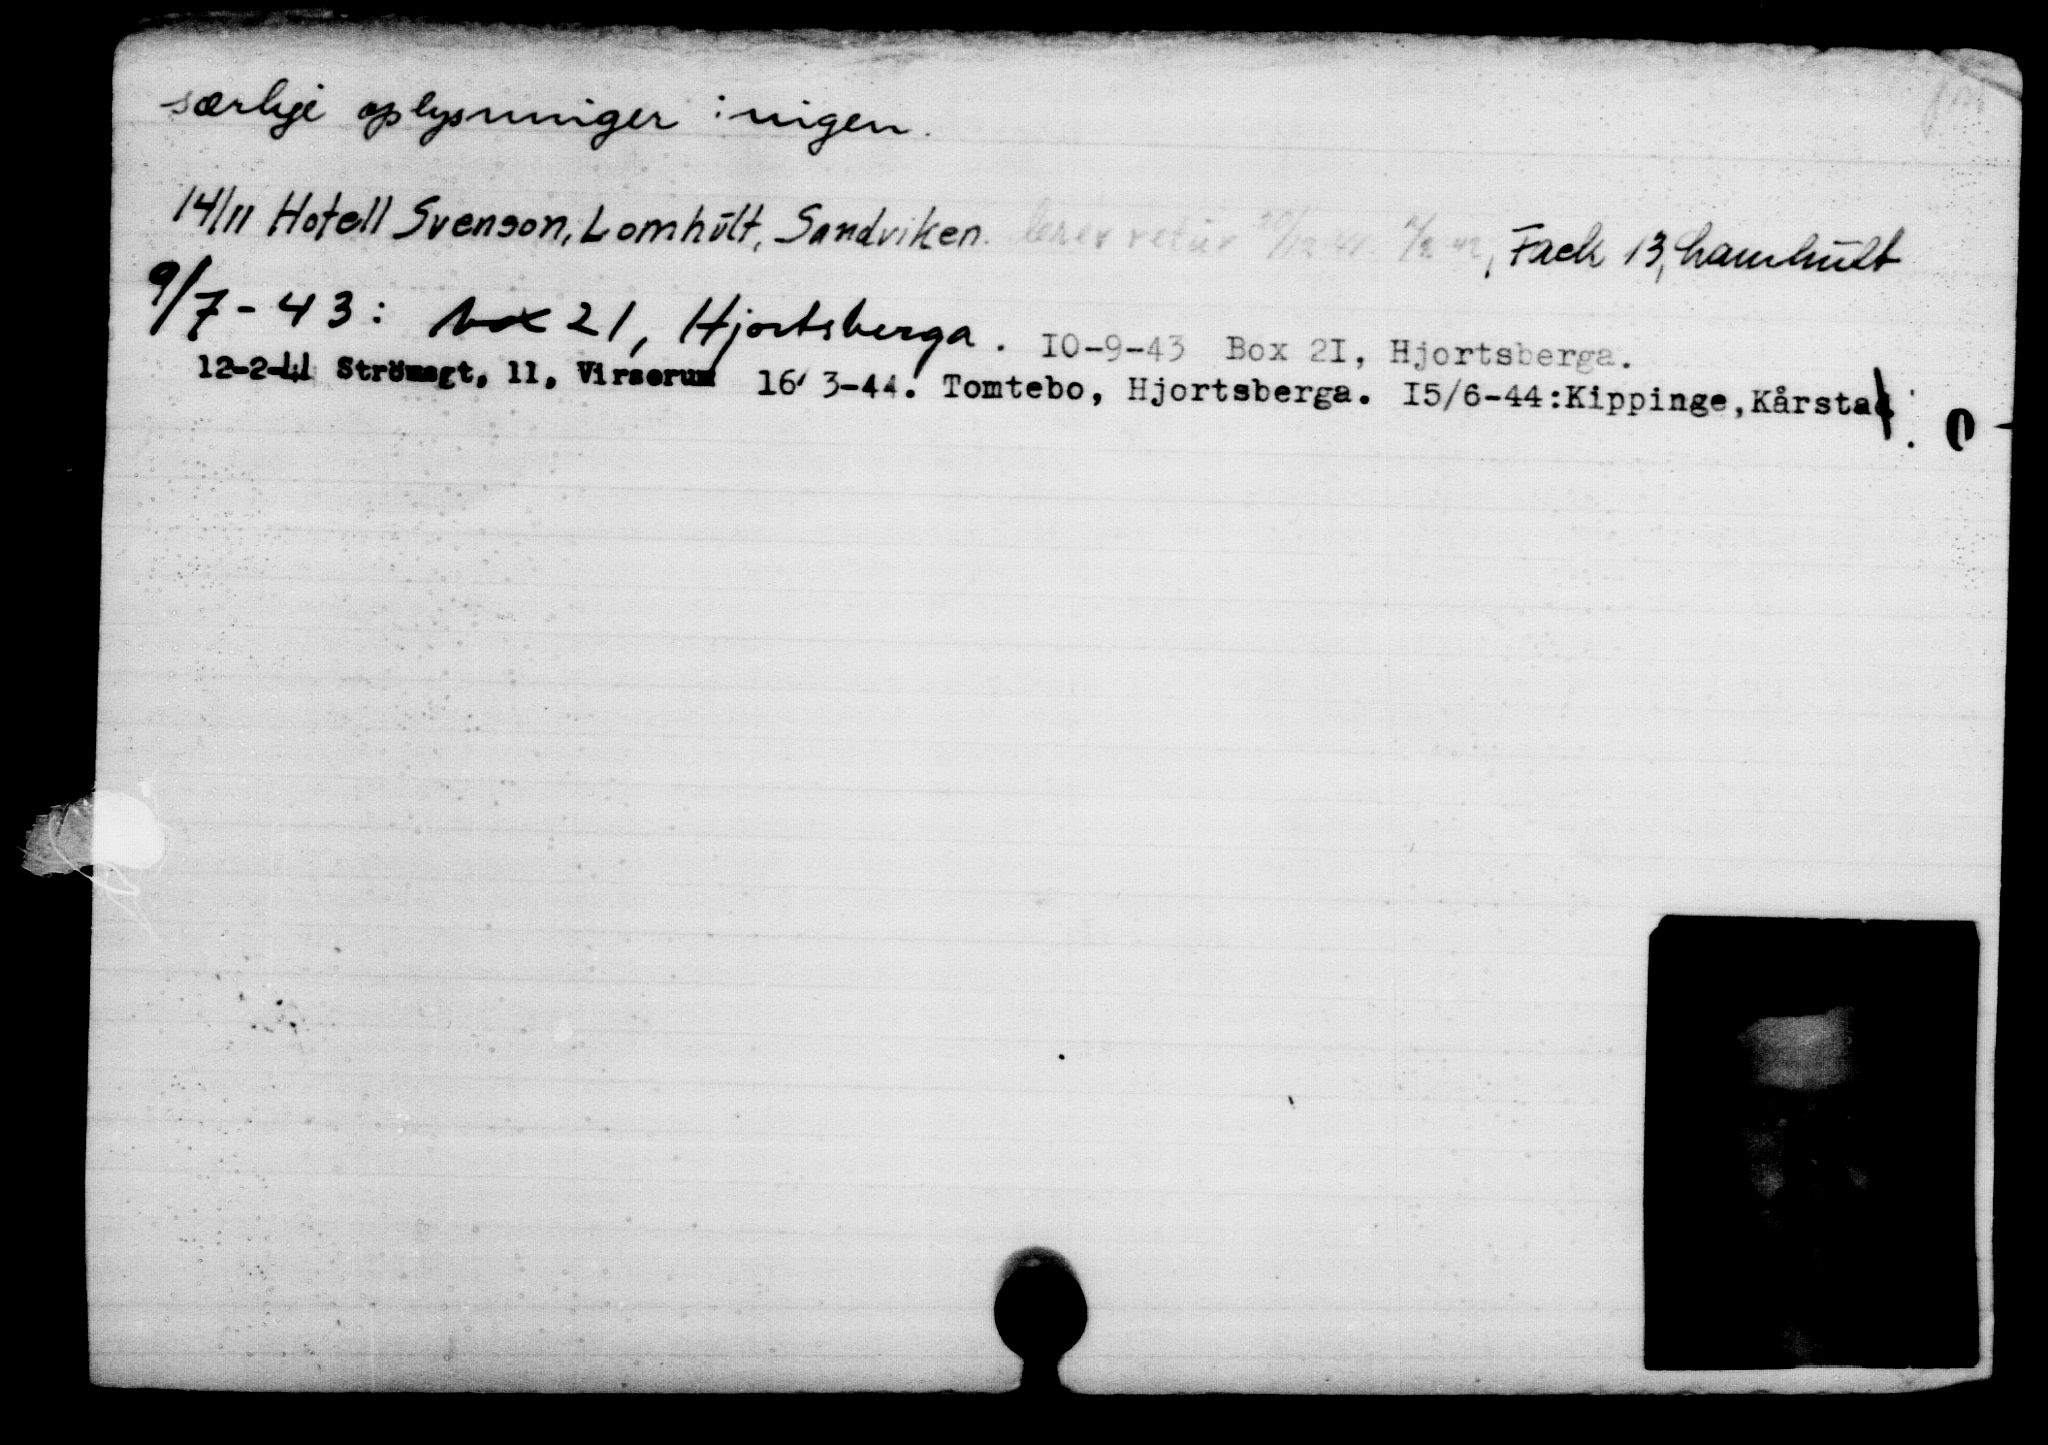 særlige oplysninger : ingen.
14/11 Hotell Svenson, Lomhült, Sandviken. brev retur , Fack 13, Lamhult
9/7-43: box 21, Hjortsberga. 10-9-43 Box 2I, Hjortsberga.
12-2-44 Strömsgt, 11, Virserum 16/3-44. Tomtebo, Hjortsberga. I5/6-44:Kippinge,Kårstad.